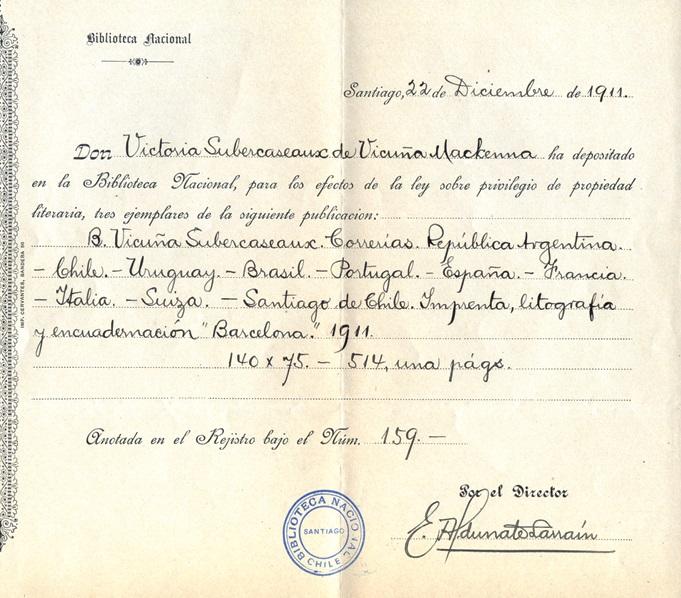 Biblioteca Nacional
Santiago, 22 de Diciembre de 1911.
Don Victoria Subercaseaux de Vicuña Mackenna ha depositado
en la Biblioteca Nacional, para los efectos de la ley sobre privilegio de propiedad
literaria, tres ejemplares de la siguiente publicacion:
B. Vicuña Subercaseaux. Correrías. República Argentina.
- Chile. - Uruguay. - Brasil. - Portugal. - España. - Francia.
- Italia. - Suiza. - Santiago de Chile. Imprenta, litografía
y encuadernación "Barcelona." 1911.
140 x 75. - 514, una págs.
Anotada en el Registro bajo el Núm. 159. -
Por el Director
E. Aldunate Larraín
BIBLIOTECA NACIONAL
SANTIAGO
CHILE
IMP. CERVANTES, BANDERA 50